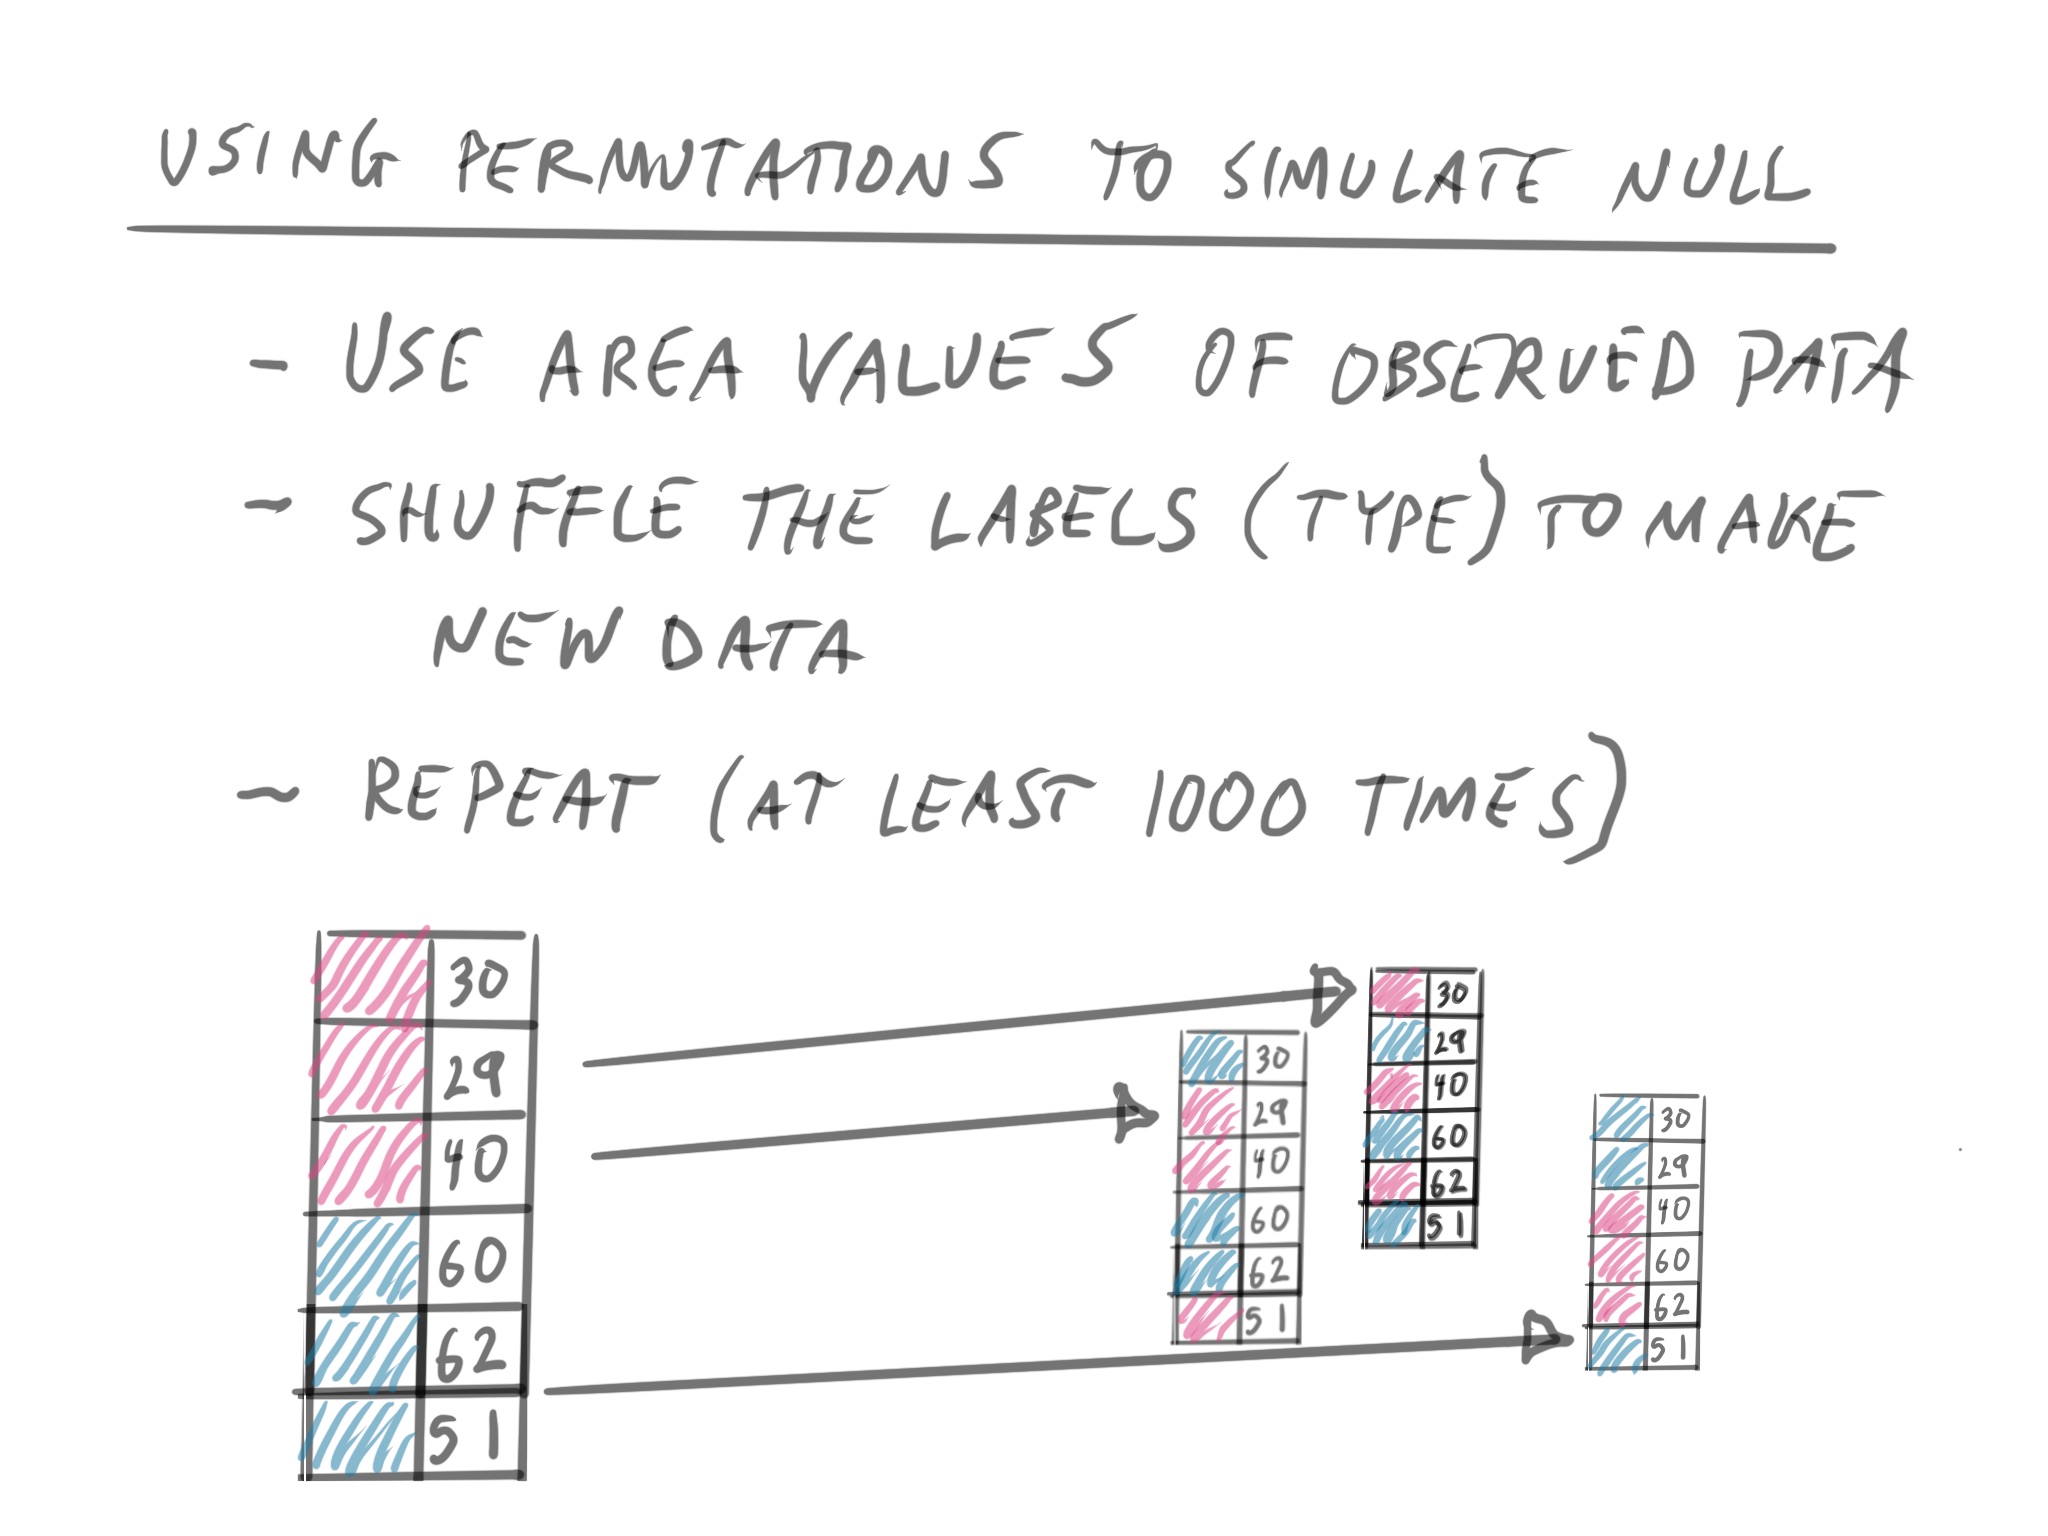 USING PERMUTATIONS TO SIMULATE NULL
- USE AREA VALUES OF OBSERVED DATA
- SHUFFLE THE LABELS (TYPE) TO MAKE
NEW DATA
- REPEAT (AT LEAST 1000 TIMES)
30
29
40
60
62
51
30
29
40
60
62
51
30
29
40
60
62
51
30
29
40
60
62
51